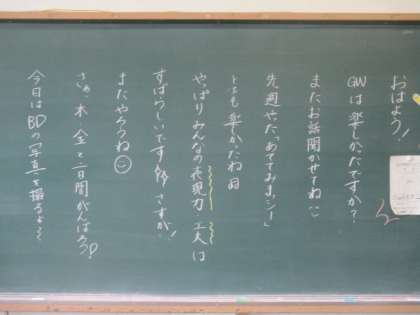 おはよう!
GWは楽しかったですか?
またお話聞かせてね
先週やった「あててみまショー」
とても楽しかったね
やっぱりみんなの表現力・工夫は
すばらしいですね さすが!
またやろうね
さぁ、木 金と二日間がんばろう!
今日はBDの写真を撮るよ〜